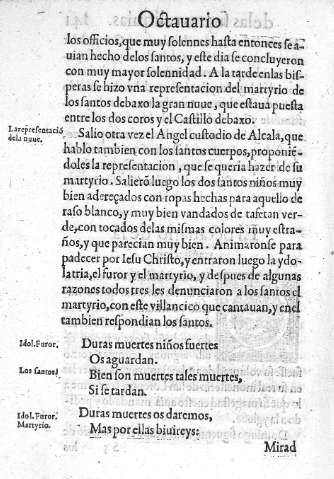 Octauario
los officios, que muy solennes hasta entonces se a-
uian hecho delos santos, y este dia se concluyeron
con muy mayor solennidad. A la tarde enlas bis-
peras se hizo vna representacion del martyrio de
los santos debaxo la gran nuue, que estaua puesta
entre los dos coros y el Castillo debaxo.
La representació
dela nuue.
Salio otra vez el Angel custodio de Alcala, que
hablo tambien con los santos cuerpos, proponié-
doles la representacion, que se queria hazer de su
martyrio. Salieró luego los dos santos niños muy
bien adereçados con ropas hechas para aquello de
raso blanco, y muy bien vandados de tafetan ver-
de, con tocados delas mismas colores muy estra-
ños, y que parecian muy bien. Animaronse para
padecer por Iesu Christo, y entraron luego la ydo-
latria, el furor y el martyrio, y despues de algunas
razones todos tres les denunciaron a los santos el
martyrio, con este villancico que cantauan, y en el
tambien respondian los santos.
Idol. Furor.
Duras muertes niños fuertes
Os aguardan.
Los santos.
Bien son muertes tales muertes,
Si se tardan.
Idol. Furor.
Martyrio.
Duras muertes os daremos,
Mas por ellas biuireys:
Mirad